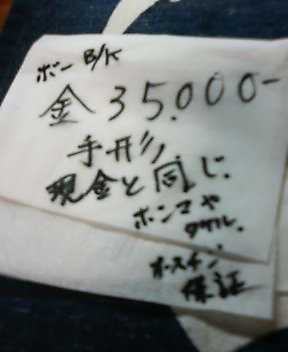 ボー B/K
金 35.000-
手形
現金と同じ.
ホンマや
タケル.
オースチン
保証